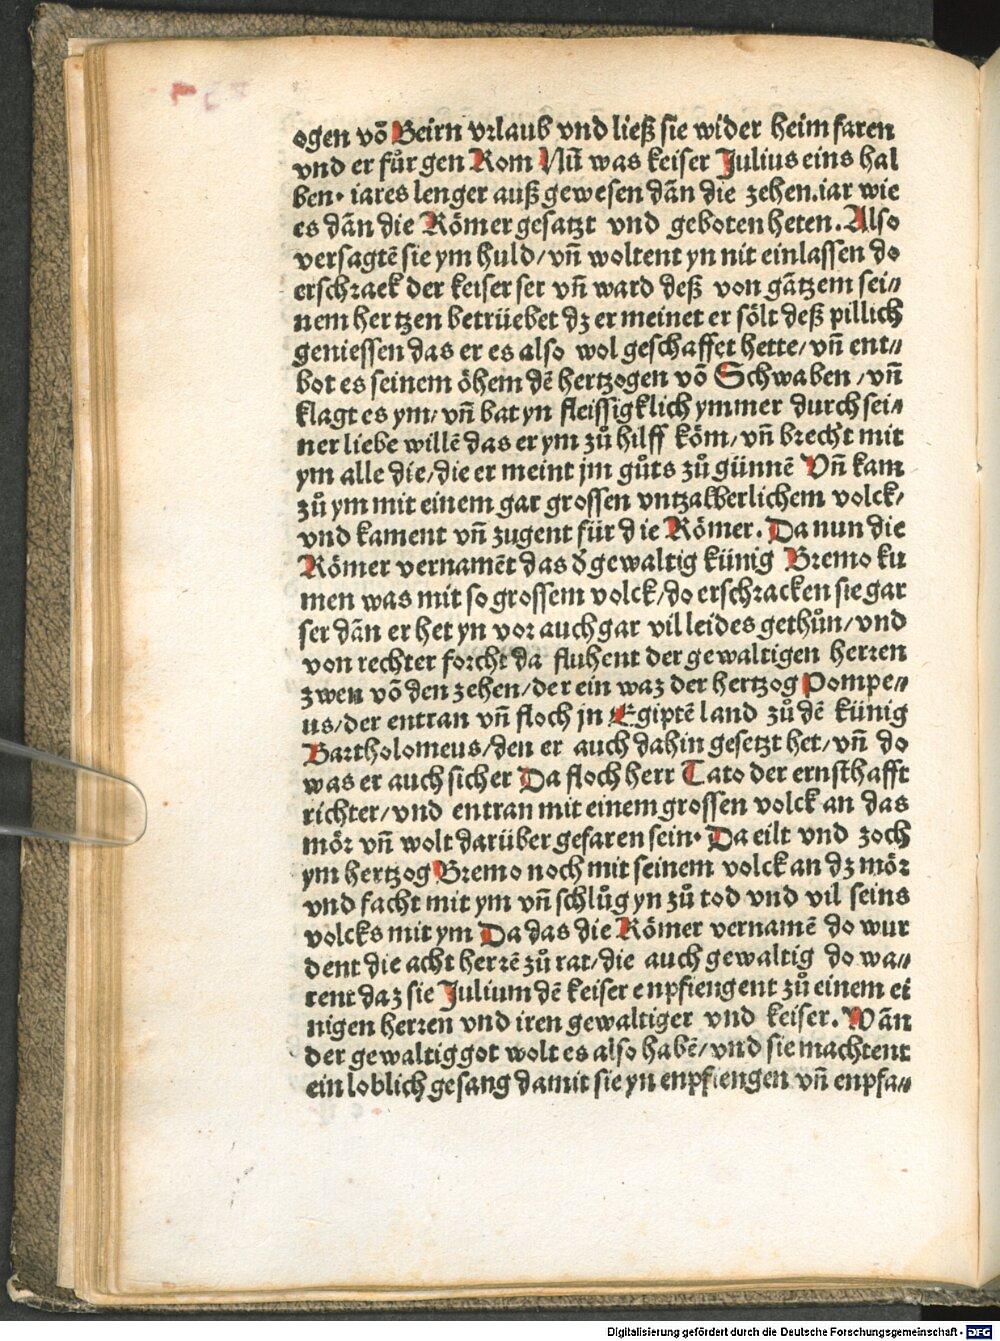 ogen võ Beirn vrlaub vnd ließ sie wider heim faren
vnd er fůr gen Rom Nũ was keiser Julius eins hal
ben. iares lenger auß gewesen dãn die zehen.iar wie
es dãn die Römer gesatzt vnd geboten heten. Also
versagtẽ sie ym huld/ vñ woltent yn nit einlassen do
erschrack der keiser ser vñ ward deß von gãtzem sei⸗
nem hertzen betrüebet dz er meinet er sölt deß pillich
geniessen das er es also wol geschaffet hette/ vñ ent⸗
bot es seinem öhem dẽ hertzogen võ Schwaben /vñ
klagt es ym/ vñ bat yn fleissigklich ymmer durch sei⸗
ner liebe willẽ das er ym zů hilff köm/ vñ brecht mit
ym alle die/die er meint jm gůts zů günnẽ Vñ kam
zů ym mit einem gar grossen vntzalberlichem volck/
vnd kament vñ zugent für d ie Römer. Da nun die
Römer vernamẽt das d̓ gewaltig künig Bremo ku
men was mit so grossem volck/do erschracken sie gar
ser dãn er het yn vor auch gar vil leides gethůn/ vnd
von rechter forcht da fluhent der gewaltigen herren
zwen võ den zehen/der ein waz der hertzog Pompe⸗
us/der entran vñ floch jn Egiptẽ land zů dẽ künig
Bartholomeus/den er auch dahin gesetzt het/ vñ do
was er auch sicher Da floch herr Cato der ernsthafft
richter/ vnd entran mit einem grossen volck an das
mör vñ wolt darüber gefaren sein. Da eilt vnd zoch
ym hertzog Bremo noch mit seinem volck an dz mör
vnd facht mit ym vñ schlůg yn zů tod vnd vil seins
volcks mit ym Da das die Römer vernamẽ do wur
dent die acht herrẽ zů rat/die auch gewaltig do wa⸗
rent daz sie Julium dẽ keiser enpfiengent zů einem ei
nigen herren vnd iren gewaltiger vnd keiser. Wãn
der gewaltig got wolt es also habẽ/ vnd sie machtent
ein loblich gesang damit sie yn enpfiengen vñ enpfa⸗
Digitalisierung gefördert durch die Deutsche Forschungsgemeinschaft - DFG